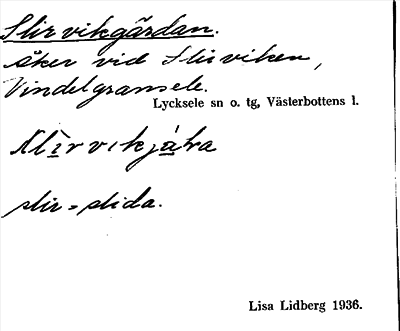 Slirvikgärdan.
åker vid Slirviken,
Vindelgransele.
Lycksele sn o. tg, Västerbottens l.
slir = slida.
Lisa Lidberg 1936.